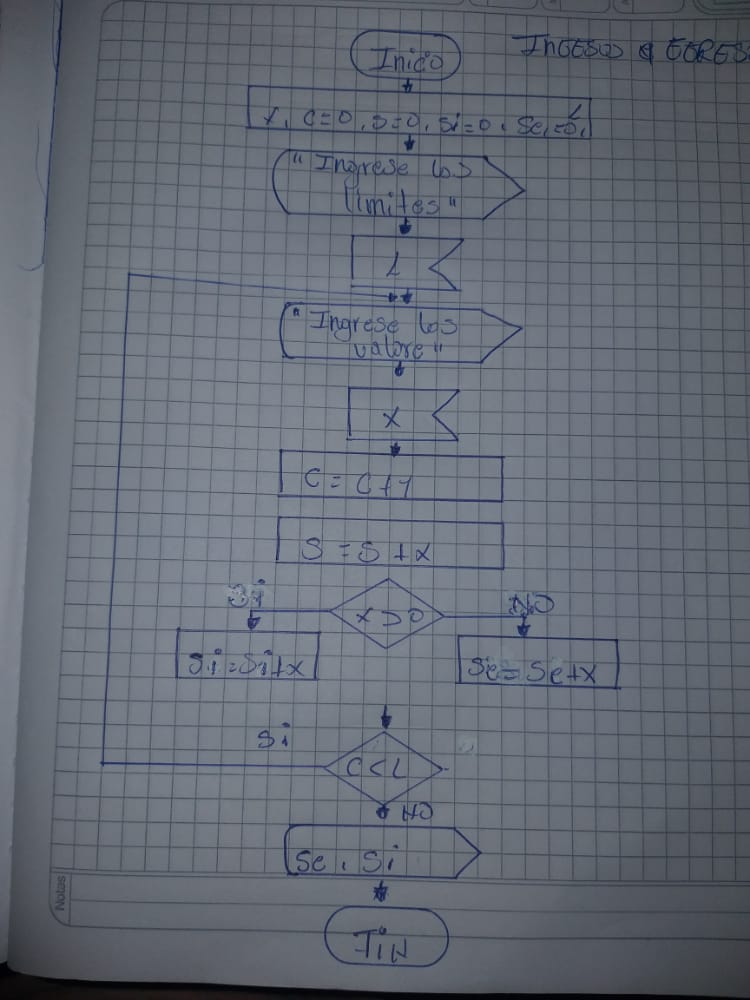 Inicio
INGESO
X, C=0, S=0, Si=0, Se=0, L
"Ingrese los
limites"
L
"Ingrese los
valore"
X
C = C+1
S = S+X
Si
NO
X>0
Si=Si+X
Se=Se+X
Si
C<L
NO
Se, Si
FIN
Notas